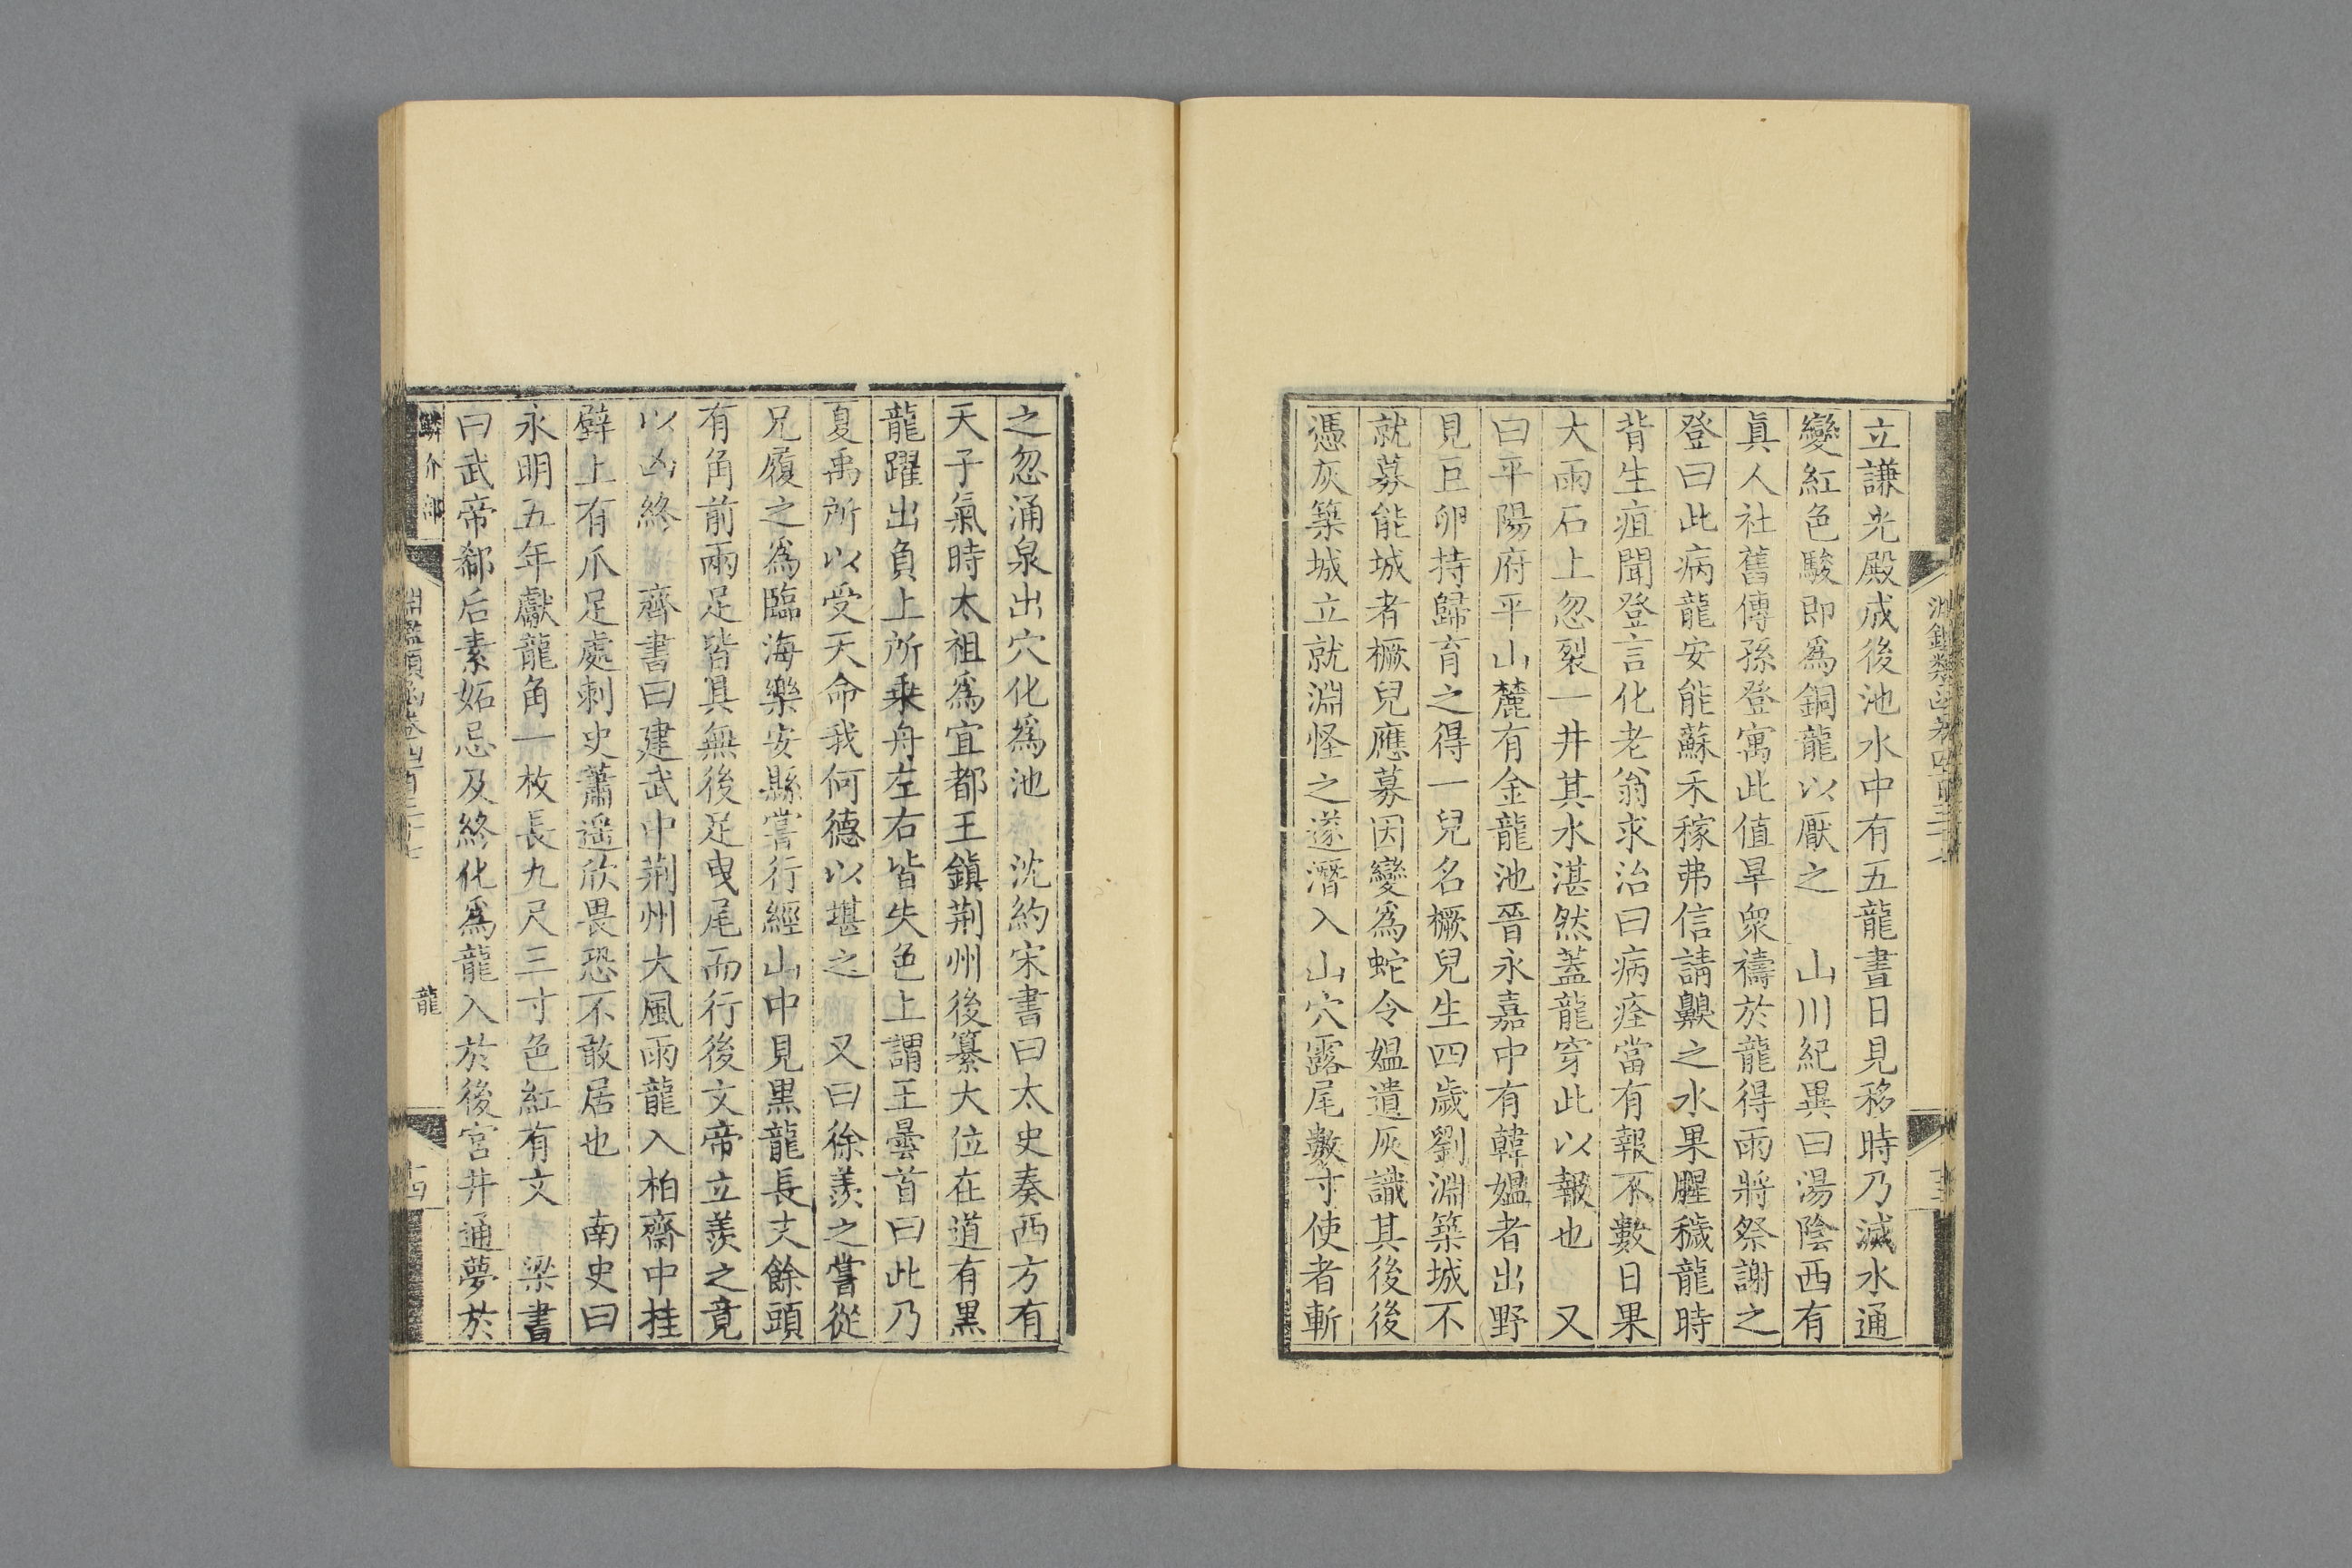 立謙光殿成後池水中有五龍晝日見移時乃滅水通
變紅色駿即爲銅龍以厭之 山川紀異曰湯陰西有
眞人社舊傳孫登寓此值旱衆禱於龍得雨將祭謝之
登曰此病龍安能蘇禾稼弗信請齅之水果腥穢龍時
背生疽聞登言化老翁求治曰病痊當有報不數日果
大雨石上忽裂一井其水湛然蓋龍穿此以報也 又
曰平陽府平山麓有金龍池晉永嘉中有韓媼者出野
見巨卵持歸育之得一兒名橛兒生四歲劉淵築城不
就募能城者橛兒應募因變爲蛇令媼遺灰識其後後
憑灰築城立就淵怪之遂潛入山穴露尾數寸使者斬
之忽涌泉出穴化爲池 沈約宋書曰太史奏西方有
天子氣時太祖爲宜都王鎭荆州後纂大位在道有黑
龍躍出負上所乗舟左右皆失色上謂王曇首曰此乃
夏禹所以受天命我何德以堪之 又曰徐羨之嘗從
兄履之爲臨海樂安縣嘗行經山中見黑龍長丈餘頭
有角前兩足皆具無後足曳尾而行後文帝立羨之竟
以凶終 齊書曰建武中荆州大風雨龍入柏齋中柱
壁上有爪足處刺史蕭遥欣畏恐不敢居也 南史曰
永明五年獻龍角一枚長九尺三寸色紅有文 梁書
曰武帝郗后素妬忌及終化爲龍入於後宮井通夢於
鱗介部
龍
十四